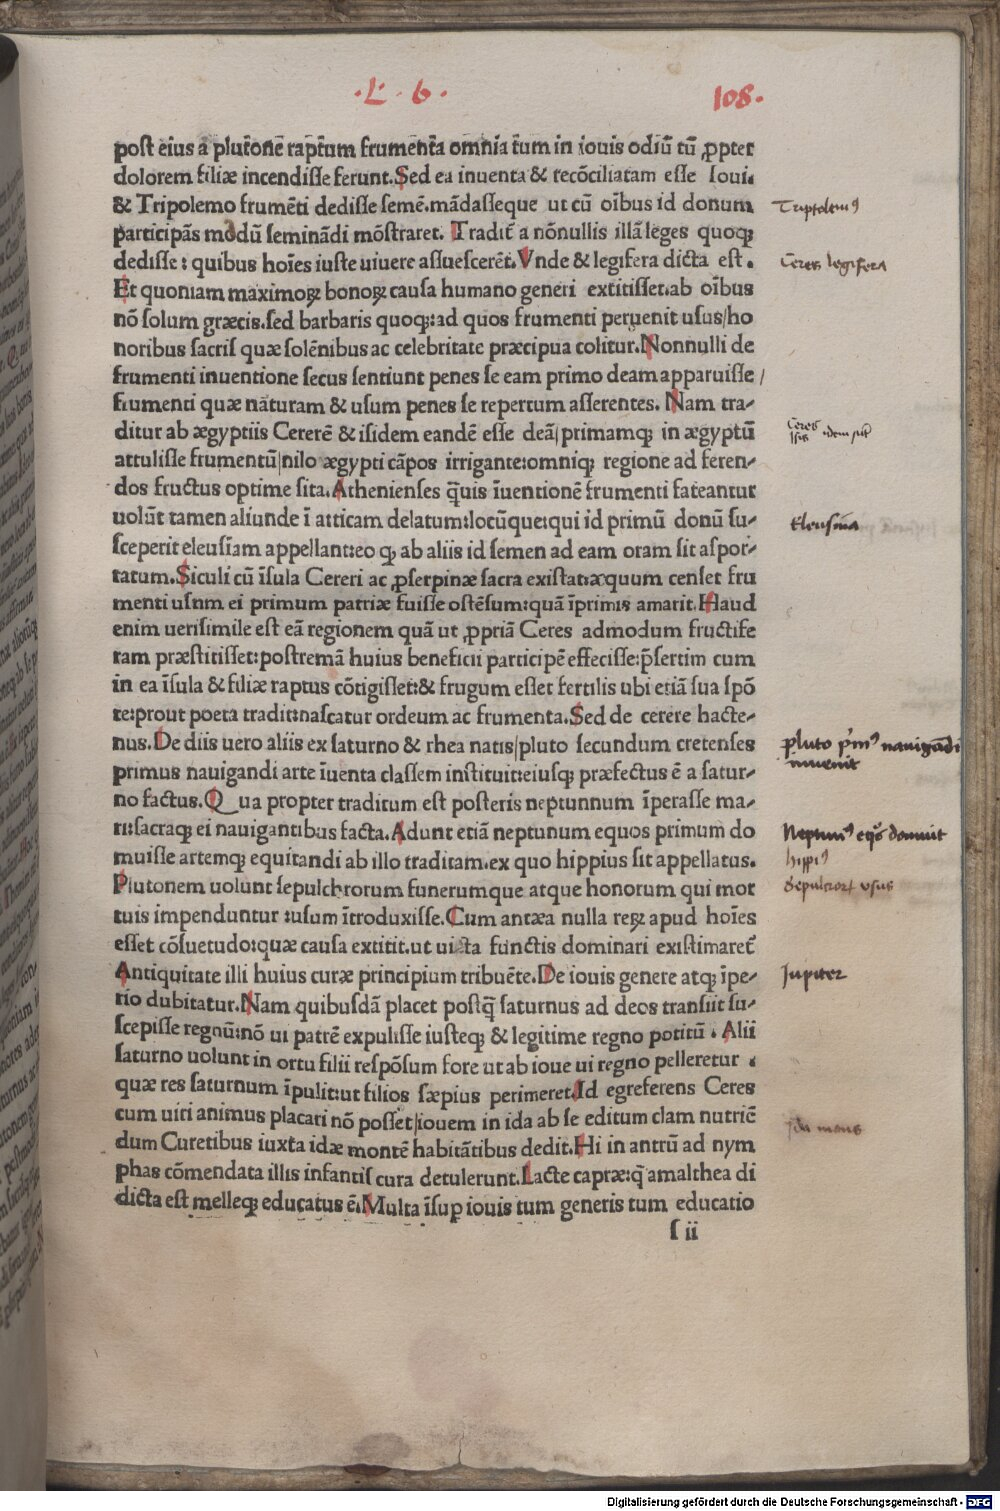 ·L·6·
108.
post eius a plutone raptum frumenta omnia tum in iouis odiū tū ꝓpter
dolorem filiæ incendisse ferunt. Sed ea inuenta & recōciliatam esse Ioui.
& Tripolemo frumēti dedisse semē. mādasseque ut cū oībus id donum
Triptolemꝰ
participās modū seminādi mōstraret. Tradit̄ a nōnullis illā leges quoqꝫ
dedisse: quibus hoīes iuste uiuere assuescerēt. Vnde & legifera dicta est.
Ceres legifera
Et quoniam maximoꝝ bonoꝝ causa humano generi extitisset. ab oībus
nō solum græcis. sed barbaris quoqꝫ: ad quos frumenti peruenit usus/ ho
noribus sacris quæ solēnibus ac celebritate præcipua colitur. Nonnulli de
frumenti inuentione secus sentiunt penes se eam primo deam apparuisse/
frumenti quæ naturam & usum penes se repertum asserentes. Nam tra-
ditur ab ægyptiis Cererē & isidem eandē esse deā/ primamqꝫ in ægyptū
Ceres
Isis idem sūt
attulisse frumentū/ nilo ægypti cāpos irrigante: omniqꝫ regione ad feren-
dos fructus optime sita. Athenienses q̄uis īuentionē frumenti fateantur
uolūt tamen aliunde ī atticam delatum: locūque: qui id primū donū su-
Eleusina
sceperit eleusīam appellant: eo qꝫ ab aliis id semen ad eam oram sit aspor-
tatum. Siculi cū īsula Cereri ac ꝓserpinæ sacra existat: æquum censet fru
menti usnm ei primum patriæ fuisse ostēsum: quā īprimis amarit. Haud
enim uerisimile est eā regionem quā ut ꝓpriā Ceres admodum fructife
ram præstitisset: postremā huius beneficii participē effecisse: p̄sertim cum
in ea īsula & filiæ raptus cōtigisset: & frugum esset fertilis ubi etiā sua spō
te: prout poeta tradit: nascatur ordeum ac frumenta. Sed de cerere hacte-
nus. De diis uero aliis ex saturno & rhea natis/ pluto secundum cretenses
pluto pīmꝰ nauigādi
inuenit
primus nauigandi arte īuenta classem instituit: eiusqꝫ præfectus ē a satur-
no factus. Qua propter traditum est posteris neptunnum īperasse ma-
ri: sacraqꝫ ei nauigantibus facta. Adunt etiā neptunum equos primum do
Neptunꝰ eqꝰs domuit
muisse artemqꝫ equitandi ab illo traditam. ex quo hippius sit appellatus.
hippiꝰ
Plutonem uolunt sepulchrorum funerumque atque honorum qui mor
sepulcrorū usus
tuis impenduntur: usum ītroduxisse. Cum antæa nulla reꝝ apud hoīes
esset cōsuetudo: quæ causa extitit. ut uita functis dominari existimaret̄
Antiquitate illi huius curæ principium tribuēte. De iouis genere atqꝫ īpe-
Jupiter
rio dubitatur. Nam quibusdā placet postq̄ saturnus ad deos transiit su-
scepisse regnū: nō ui patrē expulisse iusteqꝫ & legitime regno potitū. Alii
saturno uolunt in ortu filii respōsum fore ut ab ioue ui regno pelleretur.
quæ res saturnum īpulit: ut filios sæpius perimeret. Id egreferens Ceres
cum uiri animus placari nō posset/ iouem in ida ab se editum clam nutriē
Ida mons
dum Curetibus iuxta idæ montē habitātibus dedit. Hi in antrū ad nym
phas cōmendata illis infantis cura detulerunt. Lacte capræ: q̄ amalthea di
dicta est melleqꝫ educatus ē. Multa īsuꝑ iouis tum generis tum educatio
s ii
Digitalisierung gefördert durch die Deutsche Forschungsgemeinschaft - DFG